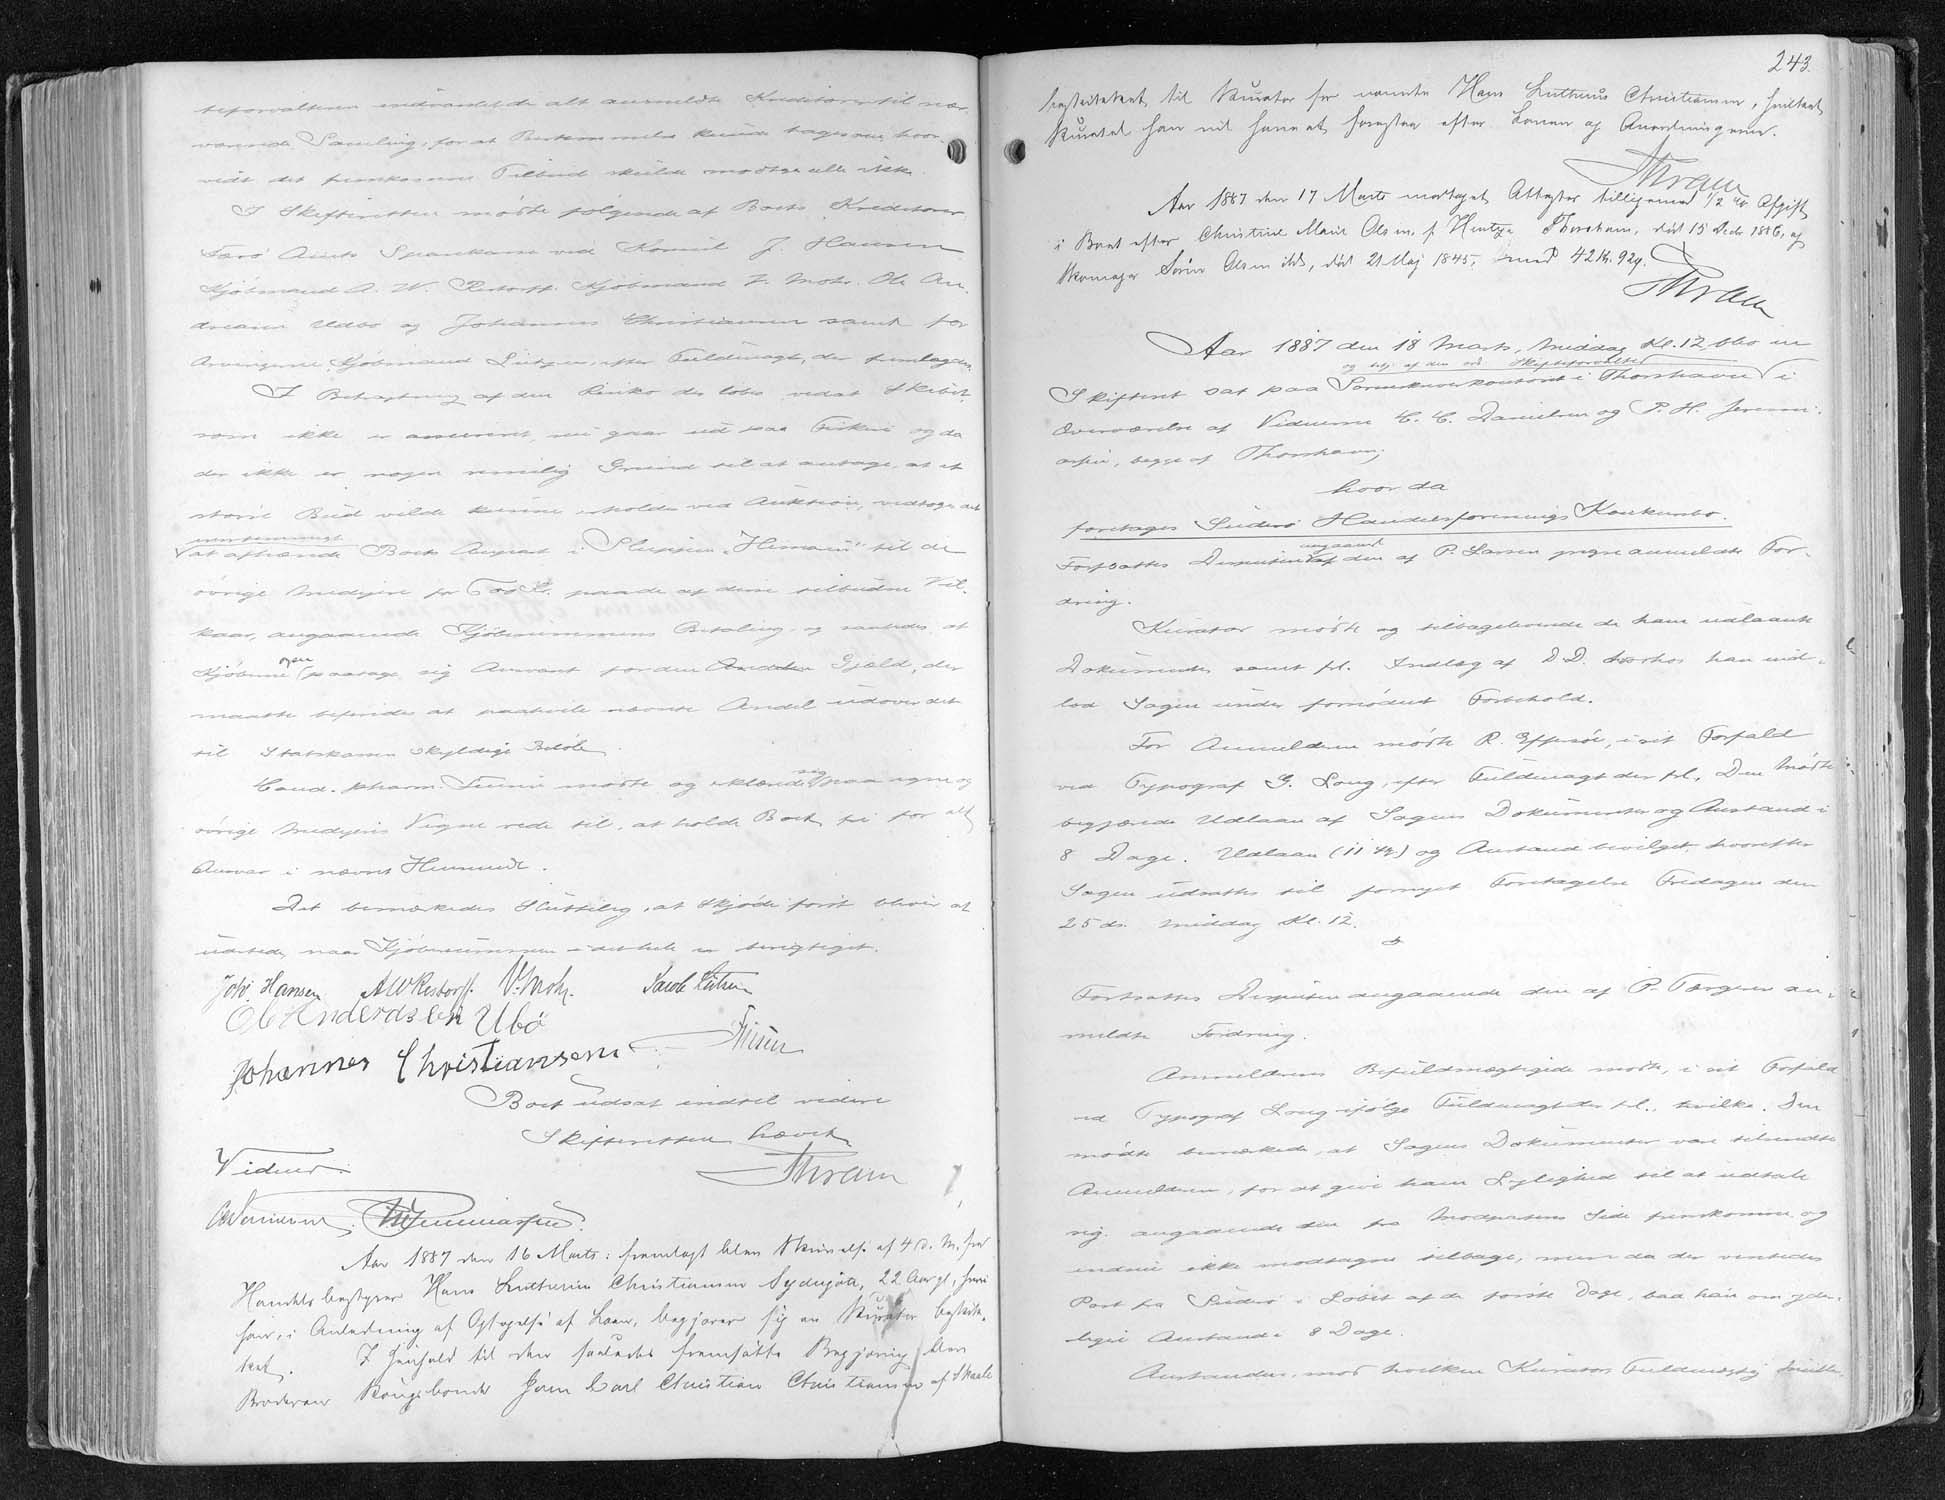 teforvalteren indvarslede alt anmeldte Kreditorer til nær-
værende Samling, for at Bestemmelse kunde tages om, hvor-
vidt det fremkomne Tilbud skulde modtages eller ikke.
I Skifteretten mødte følgende af Boets Kreditorer
Færø Amts Sparekasse ved Konsul J. Hansen
Kjøbmand A. W. Restorff. Kjøbmand V. Mohr. Ole An-
dreasen Udbø og Johannes Christiansen samt for
Arvingerne Kjøbmand Lützen, efter Fuldmagt, der fremlagdes.
I Betragtning af den Risiko der løbes ved at Skibet,
som ikke er assureret, nu gaar ud paa Fiskeri og da
der ikke er nogen rimelig Grund til at antage, at et
større Bud vilde kunne erholdes ved Auktion, vedtoges det
eenstemmigt
at afhænde Boets Anpart i Sluppen "Himain" til de
øvrige Medejere for Kr. paa de af disse tilbudne Vil-
kaar, angaaende Kjøbesummens Betaling og saaledes at
Kjøberne ogsaa paatage sig Ansvaret for den Gjæld, der
maatte befindes at paahvile nævnte Andel udover det
til Statskassen skyldige Beløb.
Cand. pharm. mødte og erklærede sig paa egne og
øvrige Medejeres Vegne rede til, at holde Boet fri for alt
Ansvar i nævnt Henseende.
Det bemærkedes sluttelig, at Skjøde først bliver at
udstede, naar Kjøbesummen i det hele er berigtiget.
Joh. Hansen A W Restorff. V. Mohr. Jacob Lützen
Ole Anderdsen Ubø
Johannes Christiansen
Boet udsat indtil videre
Skifteretten hævet
Thram
Vidner:
Aar 1887 den 16 Marts: fremlagt blev Skrivelse af 4 d. M. fra
Handelsbestyrer Hans Lutherus Christiansen Sydrgjøta, 22 Aar gl., hvori
han, i Anledning af Optagelse af Laan, begjærer sig en Kurator beskik-
ket. I Henhold til den saaledes fremsatte Begjæring blev
Broderen Kongsbonde Joen Carl Christian Christiansen af Skaale
243.
beskikket til Kurator for nævnte Hans Lutherus Christiansen, hvilket
Kuratel han vil have at forestaa efter Loven og Anordningerne.
Thram
Aar 1887 den 17 Marts modtaget Attester tilligemed 1/2 % Afgift
i Boet efter Christine Marie Olsen f. Hentze Thorshavn, død 15 Decbr 1886, og
Skomager Sören Olsen ibd, død 21 Maj 1845, med 42 Kr. 92 Ø.
Thram
Aar 1887 den 18 Marts, Middag Kl. 12, blev en
og betj. af den ord. Skifteforvalter
Skifteret sat paa Sorenskriverkontoret i Thorshavn i
Overværelse af Vidnerne C. C. Danielsen og P. H. Jeremi-
asen, begge af Thorshavn;
hvor da
foretages Suderø Handelsforenings Konkursbo.
Fortsattes Disputen angaaende den af P. Larsen anmeldte For-
dring.
Kurator mødte og tilbageleverede de ham udlaante
Dokumenter samt frl. Indlæg af D. D. han ind-
lod Sagen under fornødent Forbehold.
For Anmelderen mødte R. Effersøe, i sit Forfald
ved Typograf G. Long, efter Fuldmagt der frl. Den Mødte
begjærede Udlaan af Sagens Dokumenter og Anstand i
8 Dage. Udlaan (11 St.) og Anstand bevilget, hvorefter
Sagen udsattes til fornyet Foretagelse Fredagen den
25 ds. Middag Kl. 12.
Fortsattes Disputen angaaende den af P. an-
meldte Fordring.
Anmelderens Befuldmægtigede mødte, i sit Forfald
ved Typograf Long ifølge Fuldmagt der frl., hvilke. Den
mødte bemærkede, at Sagens Dokumenter vare tilsendte
Anmelderen, for at give ham Lejlighed til at udtale
sig angaaende den fra Modpartens Side fremkomne og
endnu ikke modtagne tilbage, men da der ventedes
Post fra Suderø i Løbet af de første Dage, bad han om yder-
ligere Anstand i 8 Dage.
Anstanden, mod hvilken Kurators Fuldmægtig